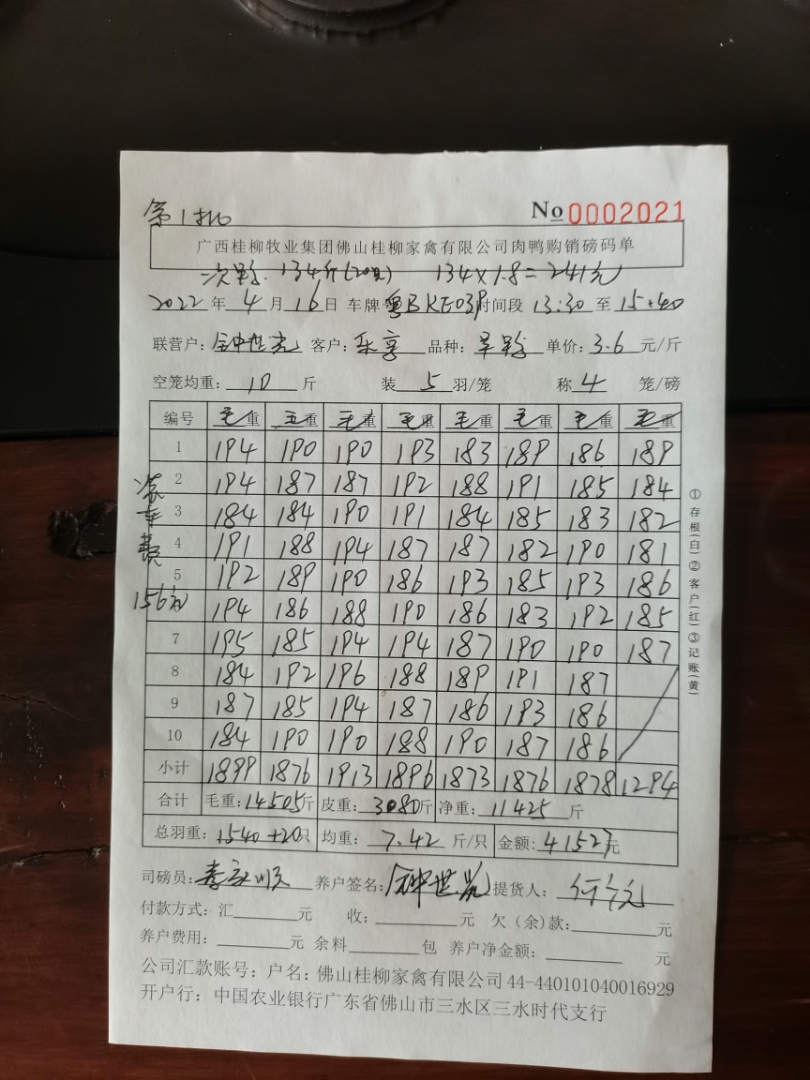 第1批 No 0002021
广西桂柳牧业集团佛山桂柳家禽有限公司肉鸭购销磅码单
次鸭. 134斤(20只) 134×1.8=241元
2022年4月16日 车牌 粤BKE03P 时间段 13:30 至 15:40
联营户: 钟世光 客户: 乐享 品种: 旱鸭 单价: 3.6 元/斤
空笼均重: 10 斤 装 5 羽/笼 称 4 笼/磅
编号 毛重 毛重 毛重 毛重 毛重 毛重 毛重 毛重
1 194 190 190 193 183 189 186 189
2 194 187 187 192 188 191 185 184
3 184 184 190 191 184 185 183 182
4 191 188 194 187 187 182 190 181
5 192 189 190 186 193 185 193 186
194 186 188 190 186 183 192 185
7 195 185 194 194 187 190 190 187
8 184 192 196 188 189 191 187
9 187 185 194 187 186 193 186
10 184 190 190 188 190 187 186
小计 1899 1876 1913 1896 1873 1876 1878 1294
合计 毛重: 14505斤 皮重: 3080斤 净重: 11425 斤
总羽重: 1540+20只 均重: 7.42 斤/只 金额: 41527元
司磅员: 养户签名: 钟世光 提货人:
付款方式: 汇 元 收: 元 欠(余)款: 元
养户费用: 元 余料 包 养户净金额: 元
公司汇款账号: 户名: 佛山桂柳家禽有限公司 44-440101040016929
开户行: 中国农业银行广东省佛山市三水区三水时代支行
装车费
156元
①存根(白)②客户(红)③记账(黄)